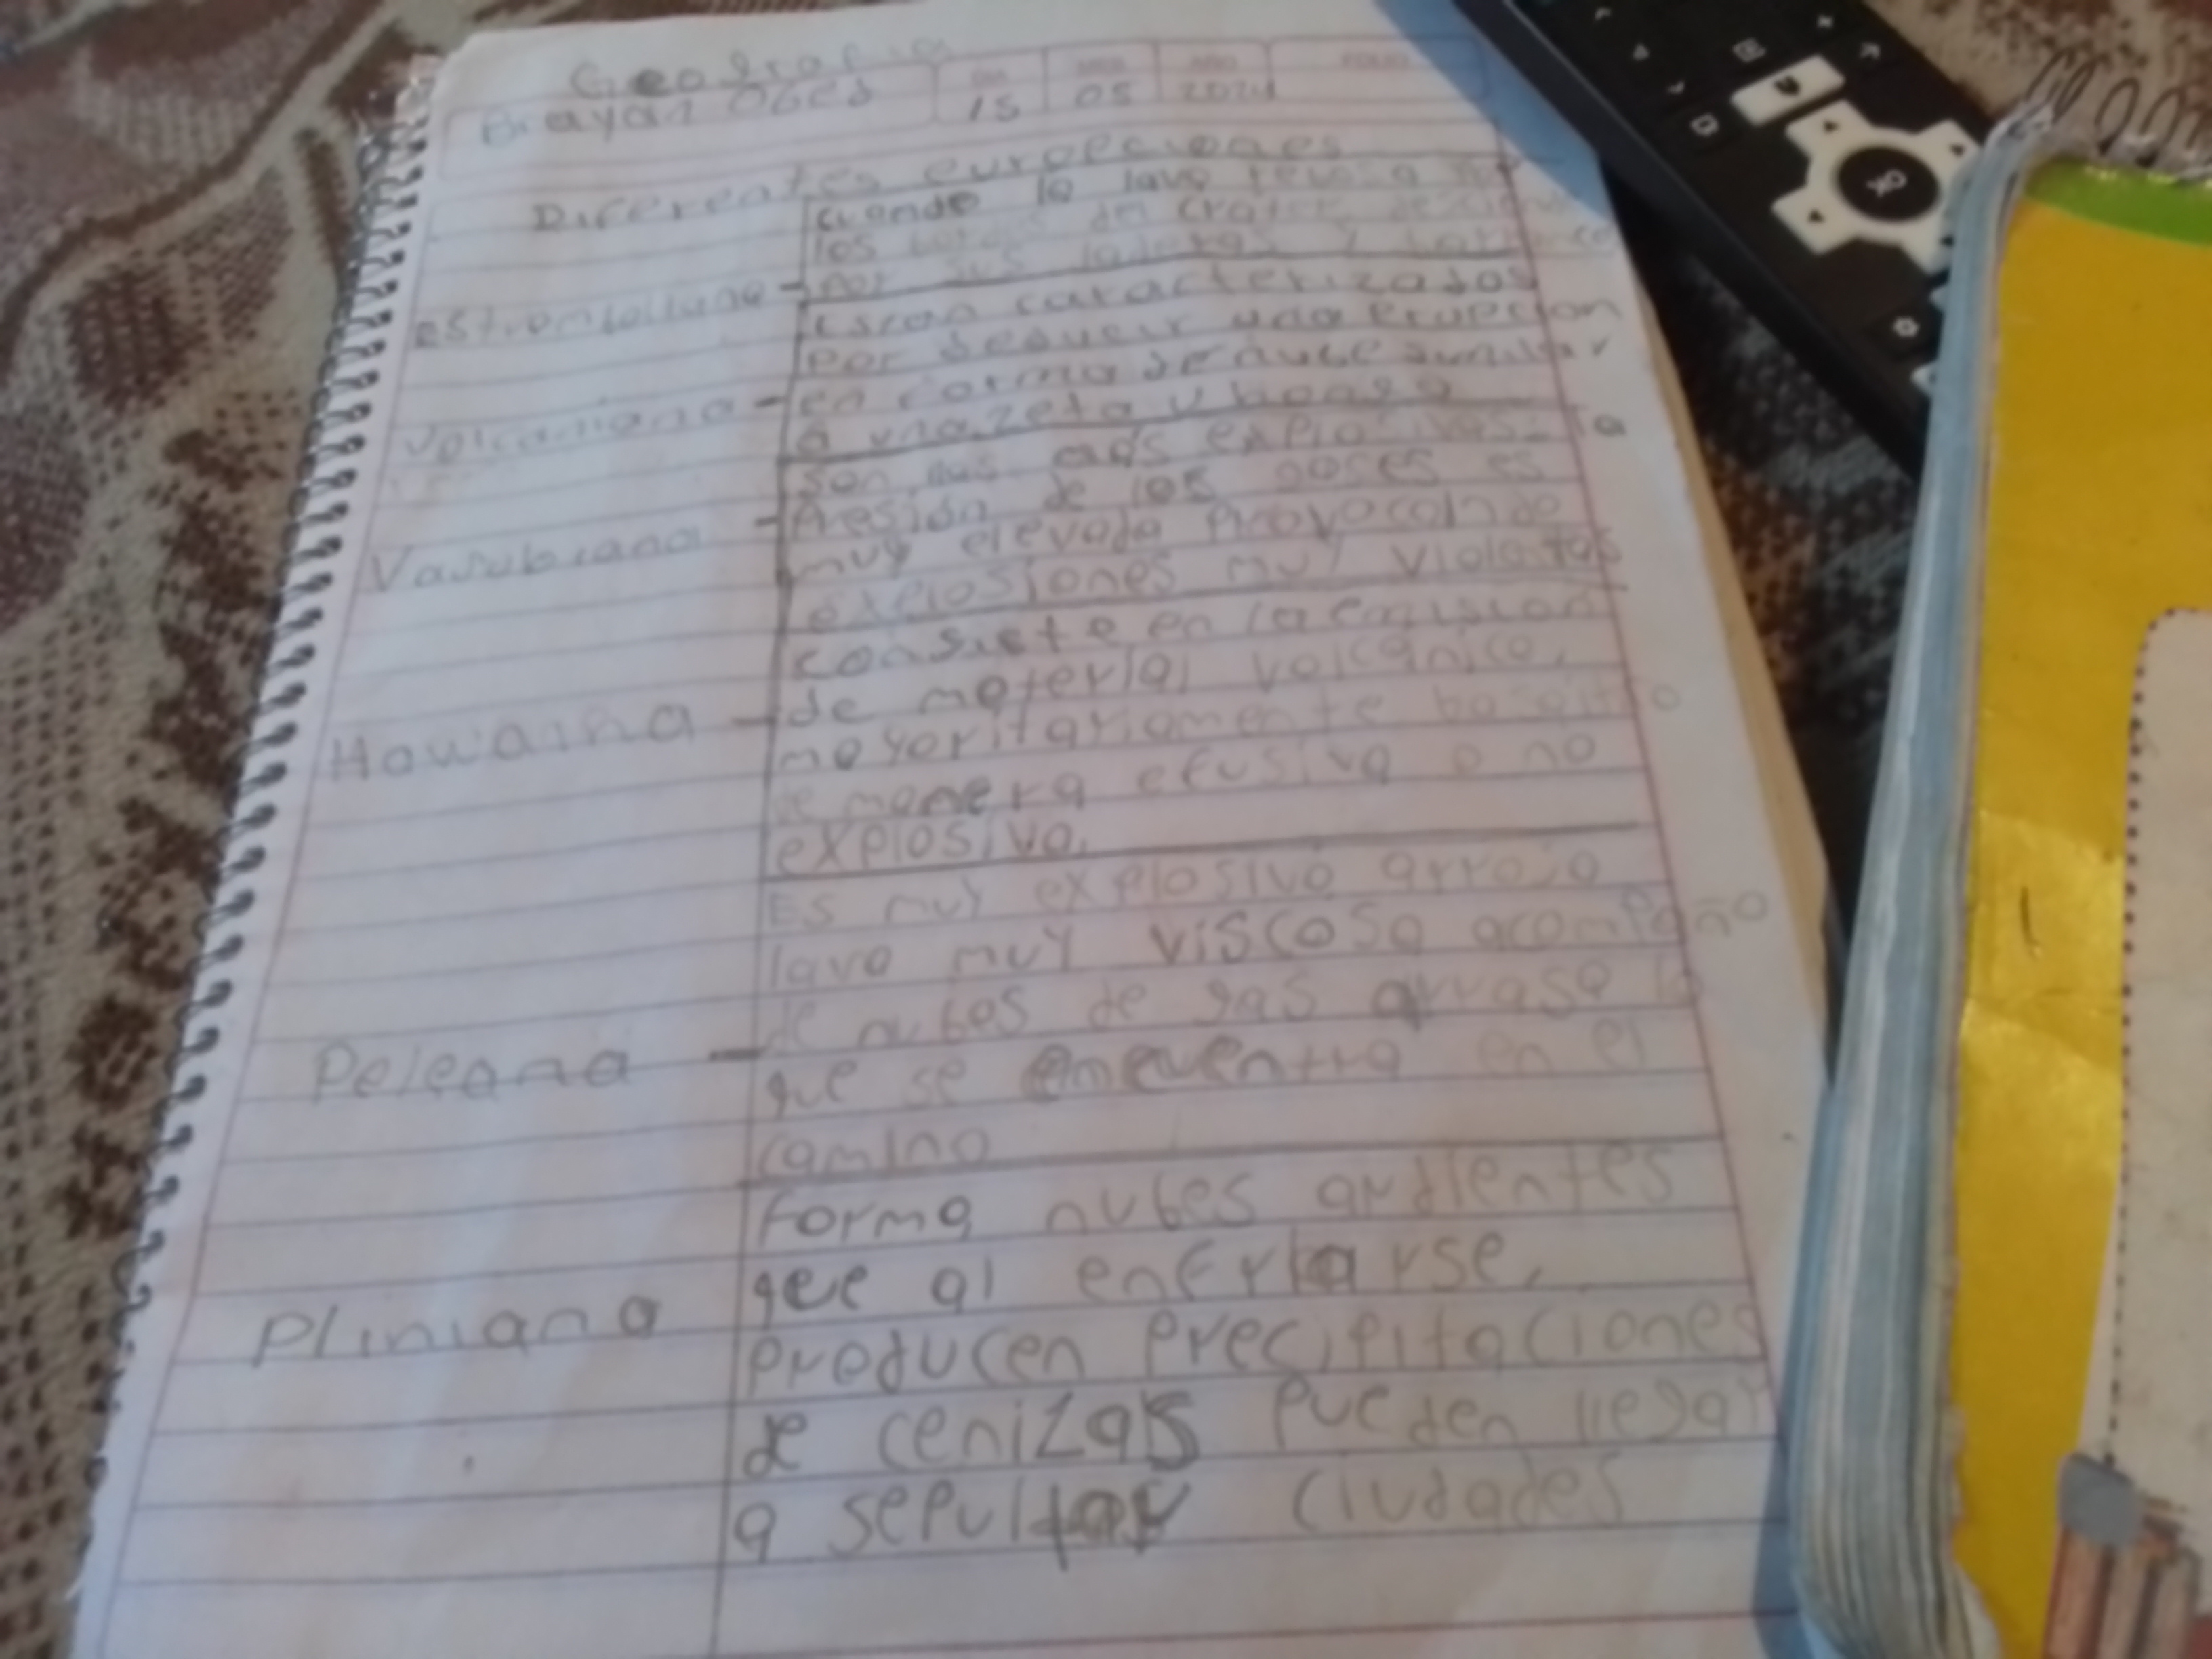 Geografia
Brayan Obed
DIA MES AÑO FOLIO
15 05 2024
Diferentes europeciones
Estromboliana - cuando la lava rebosa
los bordes del crater, desciende
por sus laderas y barrancos
Volcaniana - estan caracterizados
por deducir una erupcion
en forma de nube similar
a una zeta u hongo
Vasubiana - son mas explosivos. la
Presión de los gases es
muy elevada Provocando
explosiones muy violentas
Hawaina - consiste en la emision
de material volcánico,
mayoritariamente basaltico
de manera efusiva o no
explosiva.
Peleana - Es muy explosivo arroja
lava muy viscosa acompaño
de nubes de gas arrasa lo
que se encuentra en el
camino
Pliniana
Forma nubes ardientes
que al enfriarse,
producen Precipitaciones
de cenizas pueden llegar
a sepultar ciudades